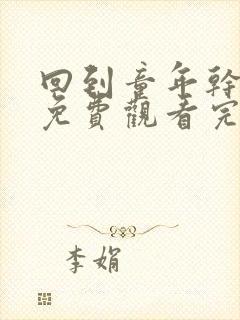 回到童年幹
免費觀看完
李娟